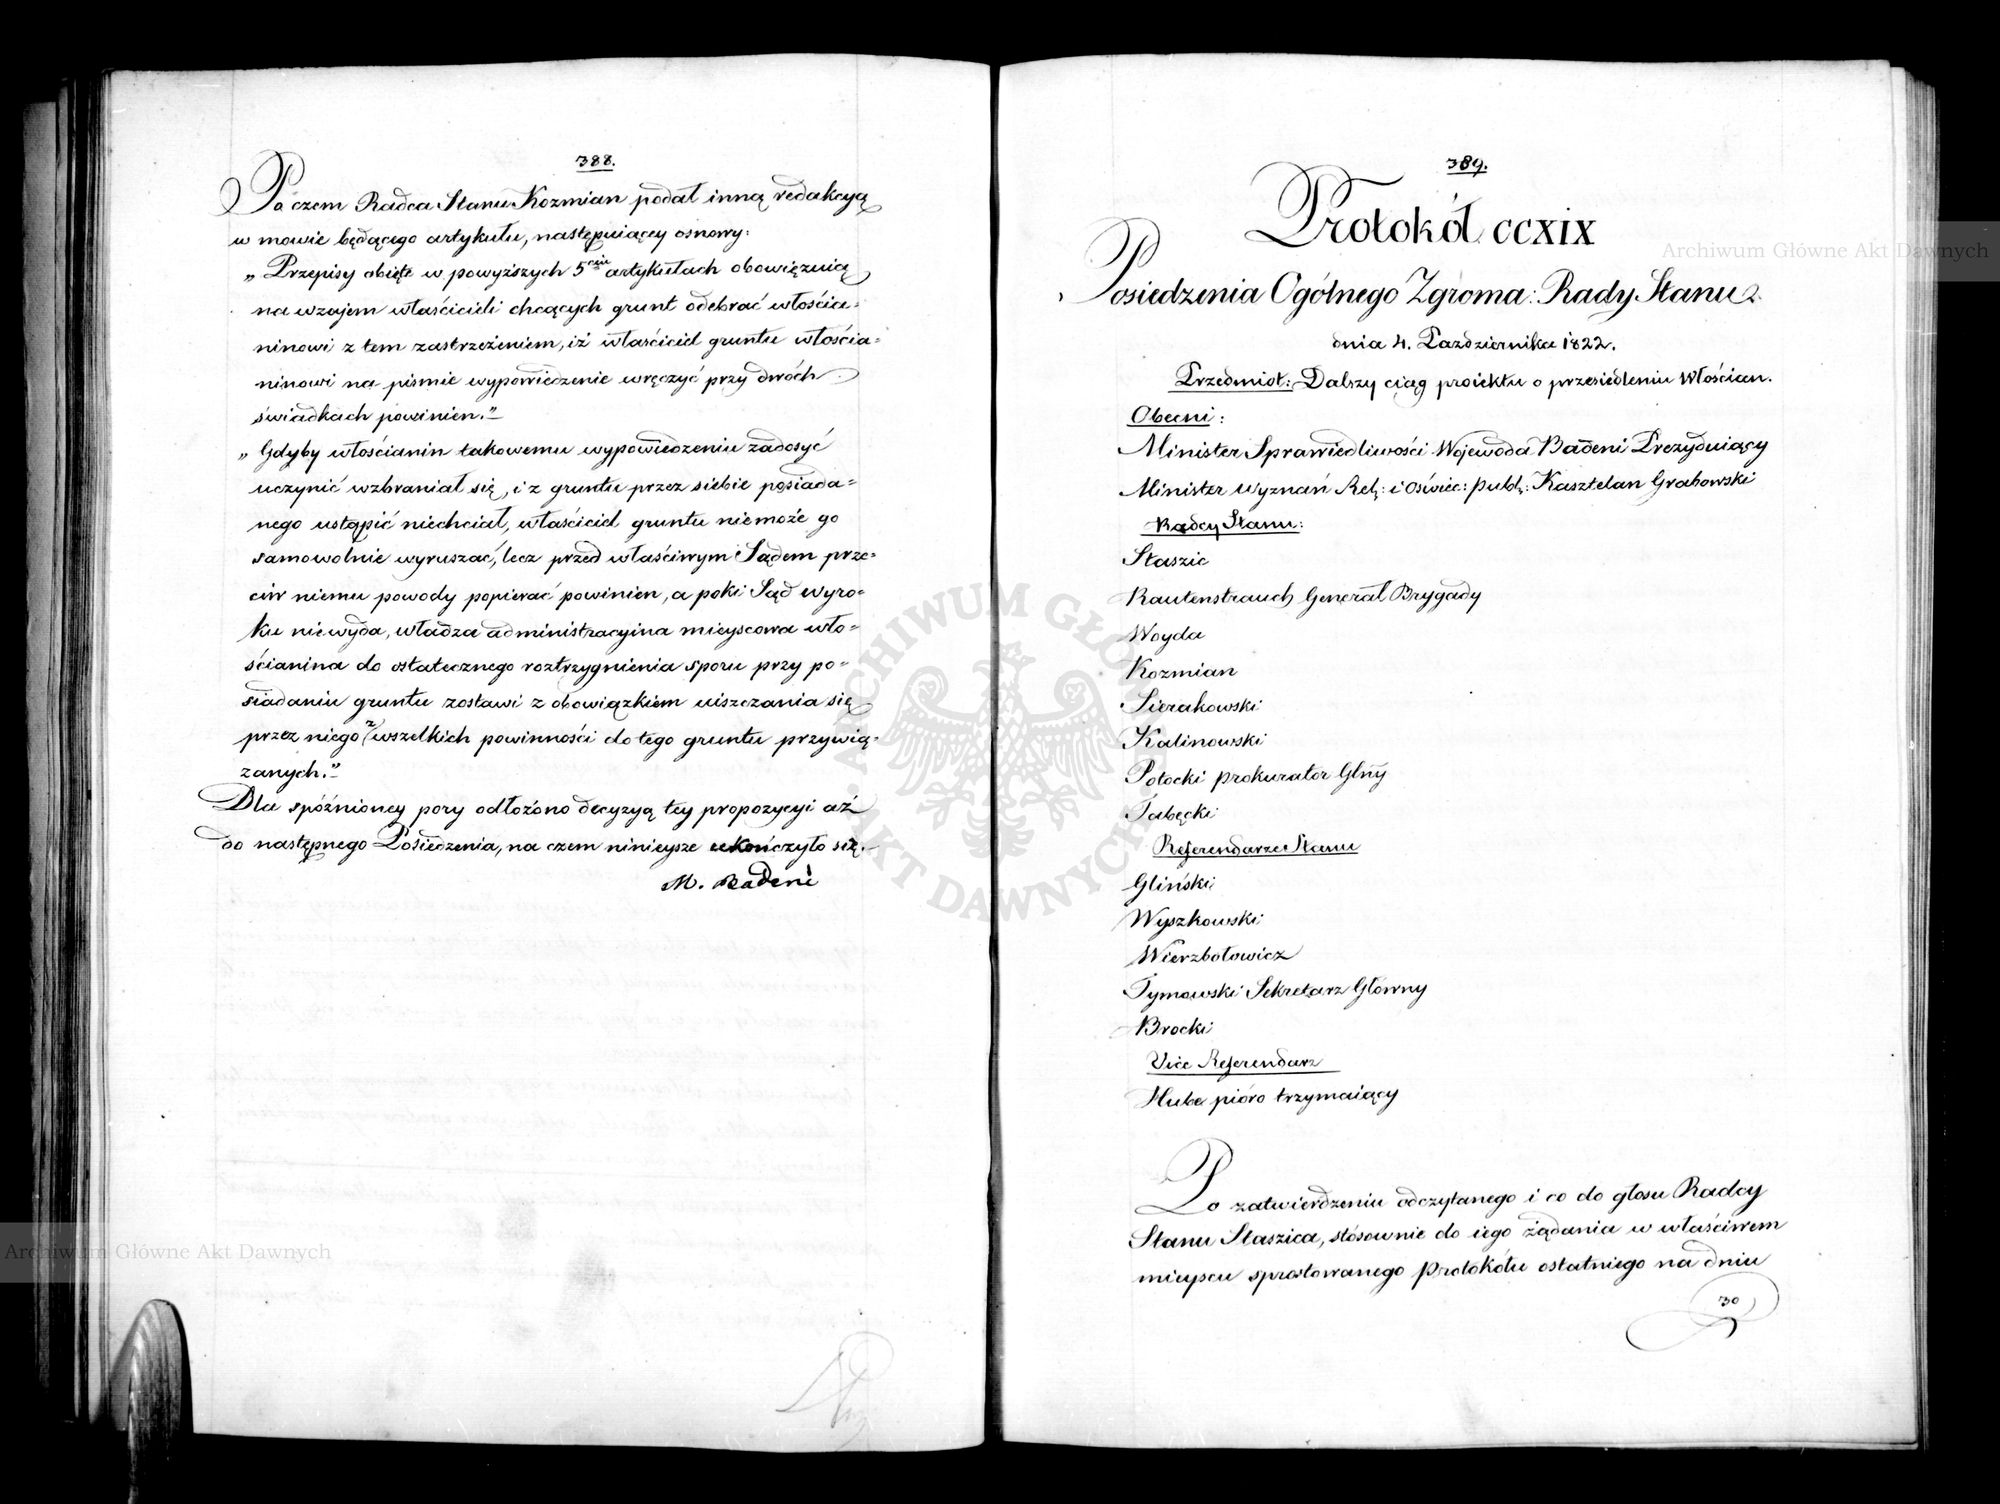 388.
Po czem Radca Stanu Kozmian podał inną redakcyą
w mowie będącego artykułu, następuiącey osnowy:
„Przepisy obięte w powyższych 5ciu artykułach obowięzuią
na wzajem właścicieli chcących grunt odebrać włościa=
ninowi z tem zastrzeżeniem, iż właściciel gruntu włościa=
ninowi na piśmie wypowiedzenie wręczyć przy dwóch
świadkach powinien."
„Gdyby włościanin takowemu wypowiedzeniu zadosyć
uczynić wzbraniał się, i z gruntu przez siebie posiada=
nego ustąpić niechciał, właściciel gruntu niemoże go
samowolnie wyruszać, lecz przed właściwym Sądem prze=
ciw niemu powody popierać powinien, a poki Sąd wyro=
ku niewyda, władza administracyina mieyscowa wło=
ścianina do ostatecznego roztrzygnienia sporu przy po=
siadaniu gruntu zostawi z obowiązkiem uiszczania się
przez niego z wszelkich powinności do tego gruntu przywią=
zanych."
Dla spóźnioney pory odłożono decyzyą tey propozycyi aż
do następnego Posiedzenia, na czem ninieysze ukończyło się.
M. Badeni
389.
Protokół CCXIX
Posiedzenia Ogólnego Zgroma: Rady Stanu
dnia 4. Października 1822.
Przedmiot: Dalszy ciąg proiektu o przesiedleniu Włościan.
Obecni:
Minister Sprawiedliwości Wojewoda Badeni Prezyduiący
Minister Wyznań Rel: i Oświec: publ: Kasztelan Grabowski
Radcy Stanu:
Staszic
Rautenstrauch Generał Brygady
Woyda
Kozmian
Sierakowski
Kalinowski
Potocki Prokurator Glny
Tabęcki
Referendarze Stanu
Gliński
Wyszkowski
Wierzbołowicz
Tymowski Sekretarz Główny
Brocki
Vice Referendarz
Hube pióro trzymaiący
Po zatwierdzeniu odczytanego i co do głosu Radcy
Stanu Staszica, stósownie do iego żądania w właściwem
mieyscu sprostowanego Protokółu ostatniego na dniu
30
Archiwum Główne Akt Dawnych
Archiwum Główne Akt Dawnych
ARCHIWUM GŁÓWNE AKT DAWNYCH